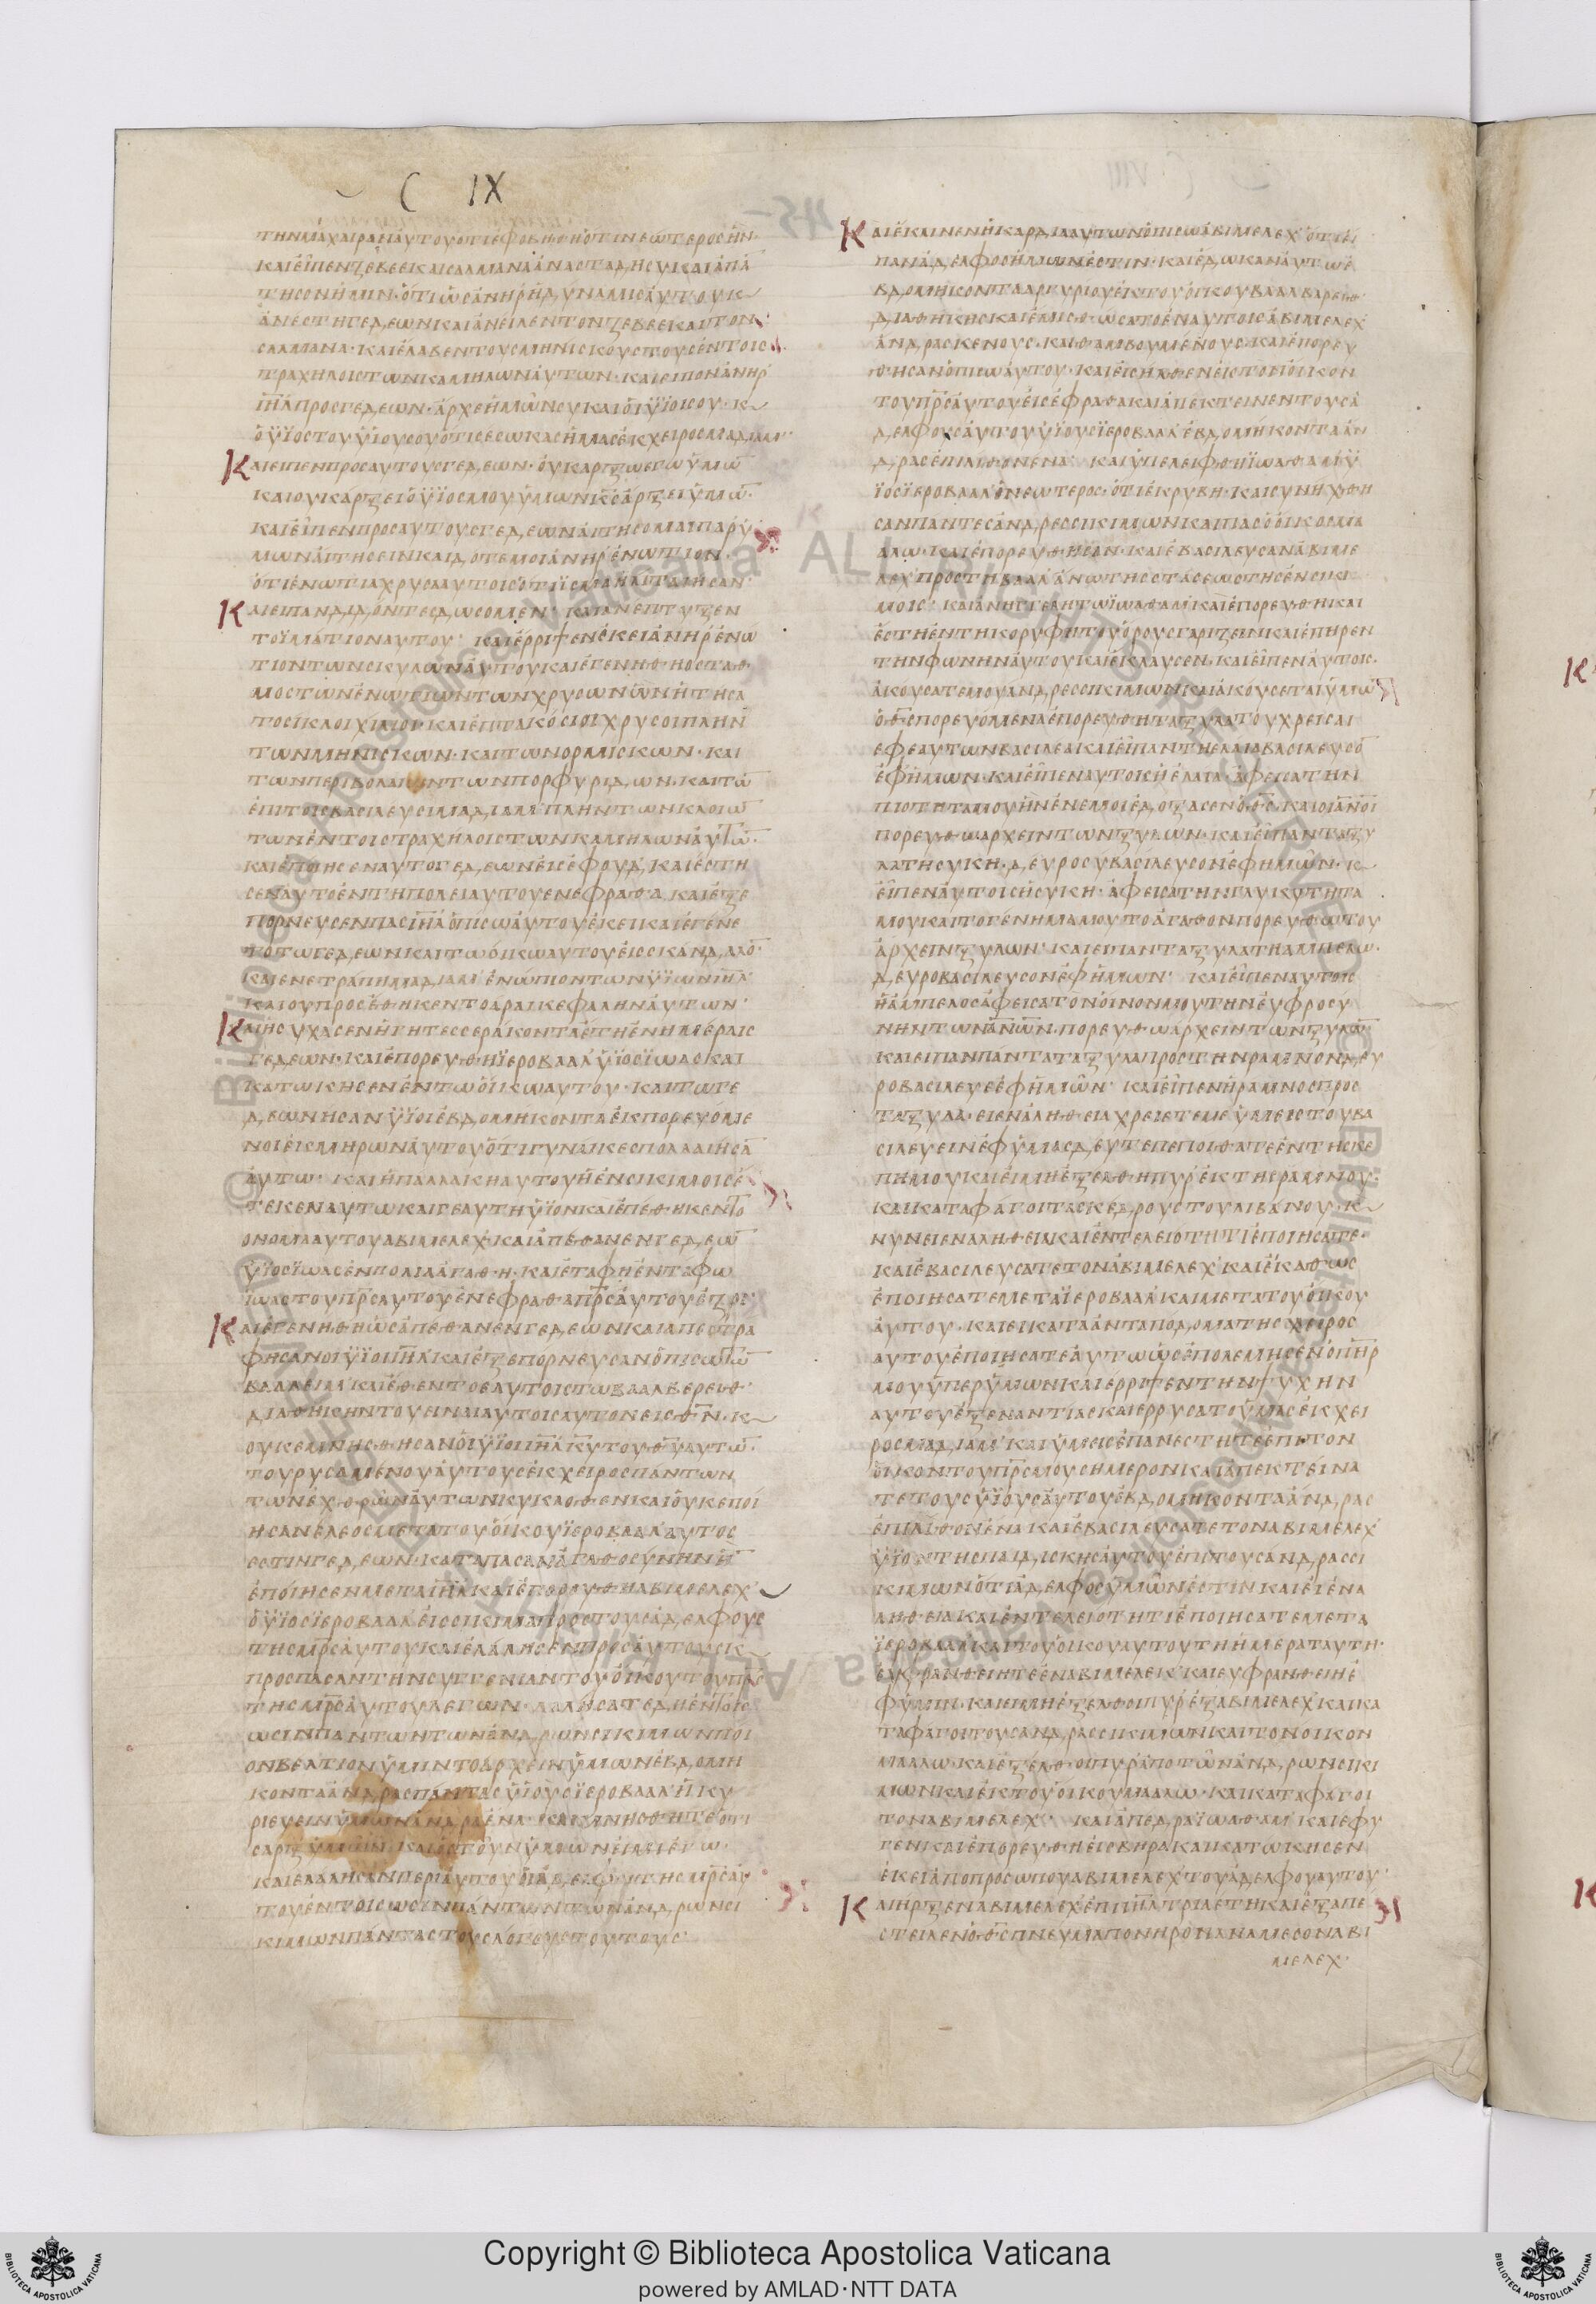 C IX
ΤΗΝΜΑΧΑΙΡΑΝΑΥΤΟΥΟΤΙΕΦΟΒΗΘΗΟΤΙΝΕΩΤΕΡΟCΗΝ·
ΚΑΙΕΙΠΕΝΖΕΒΕΕΚΑΙCΑΛΜΑΝΑΑΝΑCΤΑΔΗCΥΚΑΙΑΠΑ
ΤΗCΟΝΗΜΙΝ·ΟΤΙΩCΑΝΗΡΗΔΥΝΑΜΙCΑΥΤΟΥΚ
ΑΝΕCΤΗΓΕΔΕΩΝΚΑΙΑΝΕΙΛΕΝΤΟΝΖΕΒΕΕΚΑΙΤΟΝ
CΑΛΜΑΝΑ·ΚΑΙΕΛΑΒΕΝΤΟΥCΜΗΝΙCΚΟΥCΤΟΥCΕΝΤΟΙC
ΤΡΑΧΗΛΟΙCΤΩΝΚΑΜΗΛΩΝΑΥΤΩΝ·ΚΑΙΕΙΠΟΝΑΝΗΡ
ΙΗΛΠΡΟCΓΕΔΕΩΝ·ΑΡΧΕΗΜΩΝCΥΚΑΙΟΙΥΙΟΙCΟΥ·Κ
ΟΥΙΟCΤΟΥΥΙΟΥCΟΥΟΤΙCΕCΩΚΑCΗΜΑCΕΚΧΕΙΡΟCΜΑΔΙΑΜ·
ΚΑΙΕΙΠΕΝΠΡΟCΑΥΤΟΥCΓΕΔΕΩΝ·ΟΥΚΑΡΞΩΕΓΩΥΜΩ̅
ΚΑΙΟΥΚΑΡΞΕΙΟΥΙΟCΜΟΥΥΜΩΝΚ̅C̅ΑΡΞΕΙΥΜΩ̅·
ΚΑΙΕΙΠΕΝΠΡΟCΑΥΤΟΥCΓΕΔΕΩΝΑΙΤΗCΟΜΑΙΠΑΡΥ
ΜΩΝΑΙΤΗCΕΙΝΚΑΙΔΟΤΕΜΟΙΑΝΗΡΕΝΩΤΙΟΝ
ΟΤΙΕΝΩΤΙΑΧΡΥCΑΑΥΤΟΙCΟΤΙΙCΜΑΗΛΙΤΑΙΗCΑΝ
ΚΑΙΕΙΠΑΝΔΙΔΟΝΤΕCΔΩCΟΜΕΝ· ΚΑΙΑΝΕΠΤΥΞΕΝ
ΤΟΙΜΑΤΙΟΝΑΥΤΟΥ· ΚΑΙΕΡΡΙΨΕΝΕΚΕΙΑΝΗΡΕΝΩ
ΤΙΟΝΤΩΝCΚΥΛΩΝΑΥΤΟΥΚΑΙΕΓΕΝΗΘΗΟCΤΑΘ
ΜΟCΤΩΝΕΝΩΤΙΩΝΤΩΝΧΡΥCΩΝΩΝΗΤΗCΑ
ΤΟCΙΚΛΟΙΧΙΛΙΟΙ·ΚΑΙΕΠΤΑΚΟCΙΟΙΧΡΥCΟΙΠΛΗΝ
ΤΩΝΜΗΝΙCΚΩΝ·ΚΑΙΤΩΝΟΡΜΙCΚΩΝ·ΚΑΙ
ΤΩΝΠΕΡΙΒΟΛΑΙΩΝΤΩΝΠΟΡΦΥΡΙΔΩΝ·ΚΑΙΤΩ̅
ΕΠΙΤΟΙCΒΑCΙΛΕΥCΙΜΑΔΙΑΜ·ΠΛΗΝΤΩΝΚΛΟΙΩ̅
ΤΩΝΕΝΤΟΙCΤΡΑΧΗΛΟΙCΤΩΝΚΑΜΗΛΩΝΑΥΤΩ̅·
ΚΑΙΕΠΟΙΗCΕΝΑΥΤΟΓΕΔΕΩΝΕΙCΕΦΟΥΔ·ΚΑΙΕCΤΗ
CΕΝΑΥΤΟΕΝΤΗΠΟΛΕΙΑΥΤΟΥΕΝΕΦΡΑΘΑ·ΚΑΙΕΞΕ
ΠΟΡΝΕΥCΕΝΠΑCΙΗ̅Λ̅ΟΠΙCΩΑΥΤΟΥΕΚΕΙΚΑΙΕΓΕΝΕ
ΤΟΤΩΓΕΔΕΩΝΚΑΙΤΩΟΙΚΩΑΥΤΟΥΕΙCCΚΑΝΔΑΛΟ̅·
ΚΑΙΕΝΕΤΡΑΠΗΜΑΔΙΑΜ·ΕΝΩΠΙΟΝΤΩΝΥΙΩΝΙΗ̅Λ̅
ΚΑΙΟΥΠΡΟCΕΘΗΚΕΝΤΟΑΡΑΙΚΕΦΑΛΗΝΑΥΤΩΝ·
ΚΑΙΗCΥΧΑCΕΝΗΓΗΤΕCCΕΡΑΚΟΝΤΑΕΤΗΕΝΗΜΕΡΑΙC
ΓΕΔΕΩΝ·ΚΑΙΕΠΟΡΕΥΘΗΙΕΡΟΒΑΑΛΥΙΟCΙΩΑCΚΑΙ
ΚΑΤΩΚΗCΕΝΕΝΤΩΟΙΚΩΑΥΤΟΥ·ΚΑΙΤΩΓΕ
ΔΕΩΝΗCΑΝΥΙΟΙΕΒΔΟΜΗΚΟΝΤΑΕΚΠΟΡΕΥΟΜΕ
ΝΟΙΕΚΜΗΡΩΝΑΥΤΟΥΟΤΙΓΥΝΑΙΚΕCΠΟΛΛΑΙΗCΑ̅
ΑΥΤΩ· ΚΑΙΗΠΑΛΛΑΚΗΑΥΤΟΥΗΕΝCΙΚΙΜΟΙCΕ
ΤΕΚΕΝΑΥΤΩΚΑΙΓΕΑΥΤΗΥΙΟΝΚΑΙΕΠΕΘΗΚΕΝΤΟ
ΟΝΟΜΑΑΥΤΟΥΑΒΙΜΕΛΕΧ·ΚΑΙΑΠΕΘΑΝΕΝΓΕΔΕΩ̅
ΥΙΟCΙΩΑCΕΝΠΟΛΙΑΑΓΑΘΗ·ΚΑΙΕΤΑΦΗΕΝΤΑΦΩ
ΙΩΑCΤΟΥΠΡ̅C̅ΑΥΤΟΥΕΝΕΦΡΑΘΑΠΡ̅C̅ΑΥΤΟΥΕΖΡΕΙ·
ΚΑΙΕΓΕΝΗΘΗΩCΑΠΕΘΑΝΕΝΓΕΔΕΩΝΚΑΙΑΠΕCΤΡΑ
ΦΗCΑΝΟΙΥΙΟΙΙΗ̅Λ̅·ΚΑΙΕΞΕΠΟΡΝΕΥCΑΝΟΠΙCΩΤΩ̅
ΒΑΑΛΕΙΜ·ΚΑΙΕΘΕΝΤΟΕΑΥΤΟΙCΤΩΒΑΑΛΒΕΡΕΙΘ·
ΔΙΑΘΗΚΗΝΤΟΥΕΙΝΑΙΑΥΤΟΙCΑΥΤΟΝΕΙCΘ̅Ν̅·Κ
ΟΥΚΕΜΝΗCΘΗCΑΝΟΙΥΙΟΙΙΗ̅Λ̅Κ̅Υ̅ΤΟΥΘ̅Υ̅ΑΥΤΩ̅·
ΤΟΥΡΥCΑΜΕΝΟΥΑΥΤΟΥCΕΚΧΕΙΡΟCΠΑΝΤΩΝ
ΤΩΝΕΧΘΡΩΝΑΥΤΩΝΚΥΚΛΟΘΕΝΚΑΙΟΥΚΕΠΟΙ
ΗCΑΝΕΛΕΟCΜΕΤΑΤΟΥΟΙΚΟΥΙΕΡΟΒΑΑΛΑΥΤΟC
ΕCΤΙΝΓΕΔΕΩΝ·ΚΑΤΑΠΑCΑΝΑΓΑΘΟCΥΝΗΝΗ̅
ΕΠΟΙΗCΕΝΜΕΤΑΙΗ̅Λ̅ΚΑΙΕΠΟΡΕΥΘΗΑΒΙΜΕΛΕΧ
ΟΥΙΟCΙΕΡΟΒΑΑΛΕΙCCΙΚΙΜΑΠΡΟCΤΟΥCΑΔΕΛΦΟΥC
ΤΗCΜΡ̅C̅ΑΥΤΟΥΚΑΙΕΛΑΛΗCΕΝΠΡΟCΑΥΤΟΥCΚ
ΠΡΟCΠΑCΑΝΤΗΝCΥΓΓΕΝΙΑΝΤΟΥΟΙΚΟΥΤΟΥΠΡ̅C̅
ΤΗCΜΡ̅C̅ΑΥΤΟΥΛΕΓΩΝ·ΛΑΛΗCΑΤΕΔΗΕΝΤΟΙC
ΩCΙΝΠΑΝΤΩΝΤΩΝΑΝΔΡΩΝCΙΚΙΜΩΝΠΟΙ
ΟΝΒΕΛΤΙΟΝΥΜΙΝΤΟΑΡΧΕΙΝΥΜΩΝΕΒΔΟΜΗ
ΚΟΝΤΑΑΝΔΡΑCΠΑΝΤΑCΥΙΟΥCΙΕΡΟΒΑΑΛΗΚΥ
ΡΙΕΥΕΙΝΥΜΩΝΑΝΔΡΑΕΝΑ·ΚΑΙΜΝΗCΘΗΤΕΟΤΙ
CΑΡΞΥΜΩΝ·ΚΑΙΟCΤΟΥΝΥΜΩΝΕΙΜΙΕΓΩ·
ΚΑΙΕΛΑΛΗCΑΝΠΕΡΙΑΥΤΟΥΟΙΑΔΕΛΦΟΙΤΗCΜΡ̅C̅ΑΥ
ΤΟΥΕΝΤΟΙCΩCΙΝΠΑΝΤΩΝΤΩΝΑΝΔΡΩΝCΙ
ΚΙΜΩΝΠΑΝΤΑCΤΟΥCΛΟΓΟΥCΤΟΥΤΟΥC·
ΚΑΙΕΚΛΙΝΕΝΗΚΑΡΔΙΑΑΥΤΩΝΟΠΙCΩΑΒΙΜΕΛΕΧΟΤΙΕΙ
ΠΑΝΑΔΕΛΦΟCΗΜΩΝΕCΤΙΝ·ΚΑΙΕΔΩΚΑΝΑΥΤΩΕ
ΒΔΟΜΗΚΟΝΤΑΑΡΓΥΡΙΟΥΕΚΤΟΥΟΙΚΟΥΒΑΑΛΒΑΡΕΙΘ
ΔΙΑΘΗΚΗCΚΑΙΕΜΙCΘΩCΑΤΟΕΝΑΥΤΟΙCΑΒΙΜΕΛΕΧ
ΑΝΔΡΑCΚΕΝΟΥC·ΚΑΙΘΑΜΒΟΥΜΕΝΟΥC·ΚΑΙΕΠΟΡΕΥ
ΘΗCΑΝΟΠΙCΩΑΥΤΟΥ·ΚΑΙΕΙCΗΛΘΕΝΕΙCΤΟΝΟΙΚΟΝ
ΤΟΥΠΡ̅C̅ΑΥΤΟΥΕΙCΕΦΡΑΘΑΚΑΙΑΠΕΚΤΕΙΝΕΝΤΟΥCΑ
ΔΕΛΦΟΥCΑΥΤΟΥΥΙΟΥCΙΕΡΟΒΑΑΛΕΒΔΟΜΗΚΟΝΤΑΑΝ
ΔΡΑCΕΠΙΛΙΘΟΝΕΝΑ· ΚΑΙΥΠΕΛΕΙΦΘΗΙΩΑΘΑΜΥ
ΙΟCΙΕΡΟΒΑΑΛΟΝΕΩΤΕΡΟC·ΟΤΙΕΚΡΥΒΗ·ΚΑΙCΥΝΗΧΘΗ
CΑΝΠΑΝΤΕCΑΝΔΡΕCCΙΚΙΜΩΝΚΑΙΠΑCΟΟΙΚΟCΜΑ
ΑΛΩ·ΚΑΙΕΠΟΡΕΥΘΗCΑΝ·ΚΑΙΕΒΑCΙΛΕΥCΑΝΑΒΙΜΕ
ΛΕΧΠΡΟCΤΗΒΑΛΑΝΩΤΗCCΤΑCΕΩCΤΗCΕΝCΙΚΙ
ΜΟΙC· ΚΑΙΑΝΗΓΓΕΛΗΤΩΙΩΑΘΑΜ·ΚΑΙΕΠΟΡΕΥΘΗΚΑΙ
ΕCΤΗΕΝΤΗΚΟΡΥΦΗΤΟΥΟΡΟΥCΓΑΡΙΖΕΙΝΚΑΙΕΠΗΡΕΝ
ΤΗΝΦΩΝΗΝΑΥΤΟΥΚΑΙΕΚΛΑΥCΕΝ·ΚΑΙΕΙΠΕΝΑΥΤΟΙC·
ΑΚΟΥCΑΤΕΜΟΥΑΝΔΡΕCCΙΚΙΜΩΝΚΑΙΑΚΟΥCΕΤΑΙΥΜΩ̅
ΟΘ̅C̅ΠΟΡΕΥΟΜΕΝΑΕΠΟΡΕΥΘΗΤΑΞΥΛΑΤΟΥΧΡΕΙCΑΙ
ΕΦΕΑΥΤΩΝΒΑCΙΛΕΑΚΑΙΕΙΠΑΝΤΗΕΛΑΙΑΒΑCΙΛΕΥCΟ̅
ΕΦΗΜΩΝ·ΚΑΙΕΙΠΕΝΑΥΤΟΙCΗΕΛΑΙΑ·ΑΦΕΙCΑΤΗΝ
ΠΙΟΤΗΤΑΜΟΥΗΝΕΝΕΜΟΙΕΔΟΞΑCΕΝΟΘ̅C̅·ΚΑΙΟΙΑΝ̅Ο̅Ι̅
ΠΟΡΕΥΘΩΑΡΧΕΙΝΤΩΝΞΥΛΩΝ·ΚΑΙΕΙΠΑΝΤΑΞΥ
ΛΑΤΗCΥΚΗ·ΔΕΥΡΟCΥΒΑCΙΛΕΥCΟΝΕΦΗΜΩΝ·Κ
ΕΙΠΕΝΑΥΤΟΙCΗCΥΚΗ·ΑΦΕΙCΑΤΗΝΓΛΥΚΥΤΗΤΑ
ΜΟΥΚΑΙΤΟΓΕΝΗΜΑΜΟΥΤΟΑΓΑΘΟΝΠΟΡΕΥΘΩΤΟΥ
ΑΡΧΕΙΝΞΥΛΩΝ·ΚΑΙΕΙΠΑΝΤΑΞΥΛΑΤΗΑΜΠΕΛΩ·
ΔΕΥΡΟΒΑCΙΛΕΥCΟΝΕΦΗΜΩΝ· ΚΑΙΕΙΠΕΝΑΥΤΟΙC
ΗΑΜΠΕΛΟCΑΦΕΙCΑΤΟΝΟΙΝΟΝΜΟΥΤΗΝΕΥΦΡΟCΥ
ΝΗΝΤΩΝΑΝ̅Ω̅Ν̅·ΠΟΡΕΥΘΩΑΡΧΕΙΝΤΩΝΞΥΛΩ̅
ΚΑΙΕΙΠΑΝΠΑΝΤΑΤΑΞΥΛΑΠΡΟCΤΗΝΡΑΜΝΟΝΔΕΥ
ΡΟΒΑCΙΛΕΥΕΕΦΗΜΩΝ· ΚΑΙΕΙΠΕΝΗΡΑΜΝΟCΠΡΟC
ΤΑΞΥΛΑ·ΕΙΕΝΑΛΗΘΕΙΑΧΡΕΙΕΤΕΜΕΥΜΕΙCΤΟΥΒΑ
CΙΛΕΥΕΙΝΕΦΥΜΑCΔΕΥΤΕΠΕΠΟΙΘΑΤΕΕΝΤΗCΚΕ
ΠΗΜΟΥΚΑΙΕΙΜΗΕΞΕΛΘΗΠΥΡΕΚΤΗCΡΑΜΝΟΥ·
ΚΑΙΚΑΤΑΦΑΓΟΙΤΑCΚΕΔΡΟΥCΤΟΥΛΙΒΑΝΟΥ·Κ
ΝΥΝΕΙΕΝΑΛΗΘΕΙΑΚΑΙΕΝΤΕΛΕΙΟΤΗΤΙΕΠΟΙΗCΑΤΕ·
ΚΑΙΕΒΑCΙΛΕΥCΑΤΕΤΟΝΑΒΙΜΕΛΕΧΚΑΙΕΙΚΑΘΩC
ΕΠΟΙΗCΑΤΕΜΕΤΑΙΕΡΟΒΑΑΛΚΑΙΜΕΤΑΤΟΥΟΙΚΟΥ
ΑΥΤΟΥ·ΚΑΙΕΙΚΑΤΑΑΝΤΑΠΟΔΟΜΑΤΗCΧΕΙΡΟC
ΑΥΤΟΥΕΠΟΙΗCΑΤΕΑΥΤΩΩCΕΠΟΛΕΜΗCΕΝΟΠ̅Η̅Ρ̅
ΜΟΥΥΠΕΡΥΜΩΝΚΑΙΕΡΡΙΨΕΝΤΗΝΨΥΧΗΝ
ΑΥΤΟΥΕΞΕΝΑΝΤΙΑCΚΑΙΕΡΡΥCΑΤΟΥΜΑCΕΚΧΕΙ
ΡΟCΜΑΔΙΑΜ·ΚΑΙΥΜΕΙCΕΠΑΝΕCΤΗΤΕΕΠΙΤΟΝ
ΟΙΚΟΝΤΟΥΠΡ̅C̅ΜΟΥCΗΜΕΡΟΝΚΑΙΑΠΕΚΤΕΙΝΑ
ΤΕΤΟΥCΥΙΟΥCΑΥΤΟΥΕΒΔΟΜΗΚΟΝΤΑΑΝΔΡΑC
ΕΠΙΛΙΘΟΝΕΝΑΚΑΙΕΒΑCΙΛΕΥCΑΤΕΤΟΝΑΒΙΜΕΛΕΧ
ΥΙΟΝΤΗCΠΑΙΔΙCΚΗCΑΥΤΟΥΕΠΙΤΟΥCΑΝΔΡΑCCΙ
ΚΙΜΩΝΟΤΙΑΔΕΛΦΟCΥΜΩΝΕCΤΙΝΚΑΙΕΙΕΝΑ
ΛΗΘΕΙΑΚΑΙΕΝΤΕΛΕΙΟΤΗΤΙΕΠΟΙΗCΑΤΕΜΕΤΑ
ΙΕΡΟΒΑΑΛΚΑΙΤΟΥΟΙΚΟΥΑΥΤΟΥΤΗΗΜΕΡΑΤΑΥΤΗ·
ΕΥΦΡΑΝΘΕΙΗΤΕΕΝΑΒΙΜΕΛΕΧ·ΚΑΙΕΥΦΡΑΝΘΕΙΗΕ
ΦΥΜΙΝ·ΚΑΙΕΙΜΗΕΞΕΛΘΟΙΠΥΡΕΞΑΒΙΜΕΛΕΧΚΑΙΚΑ
ΤΑΦΑΓΟΙΤΟΥCΑΝΔΡΑCCΙΚΙΜΩΝΚΑΙΤΟΝΟΙΚΟΝ
ΜΑΑΛΩ·ΚΑΙΕΞΕΛΘΟΙΠΥΡΑΠΟΤΩΝΑΝΔΡΩΝCΙΚΙ
ΜΩΝΚΑΙΕΚΤΟΥΟΙΚΟΥΜΑΑΛΩ·ΚΑΙΚΑΤΑΦΑΓΟΙ
ΤΟΝΑΒΙΜΕΛΕΧ· ΚΑΙΑΠΕΔΡΑΙΩΑΘΑΜ·ΚΑΙΕΦΥ
ΓΕΝΚΑΙΕΠΟΡΕΥΘΗΕΙCΒΗΡΑΚΑΙΚΑΤΩΚΗCΕΝ
ΕΚΕΙΑΠΟΠΡΟCΩΠΟΥΑΒΙΜΕΛΕΧΤΟΥΑΔΕΛΦΟΥΑΥΤΟΥ·
ΚΑΙΗΡΞΕΝΑΒΙΜΕΛΕΧΕΠΙΙΗ̅Λ̅ΤΡΙΑΕΤΗΚΑΙΕΞΑΠΕ
CΤΕΙΛΕΝΟΘ̅C̅ΠΝΕΥΜΑΠΟΝΗΡΟΝΑΝΑΜΕCΟΝΑΒΙ
ΜΕΛΕΧ·
Copyright © Biblioteca Apostolica Vaticana
powered by AMLAD·NTT DATA